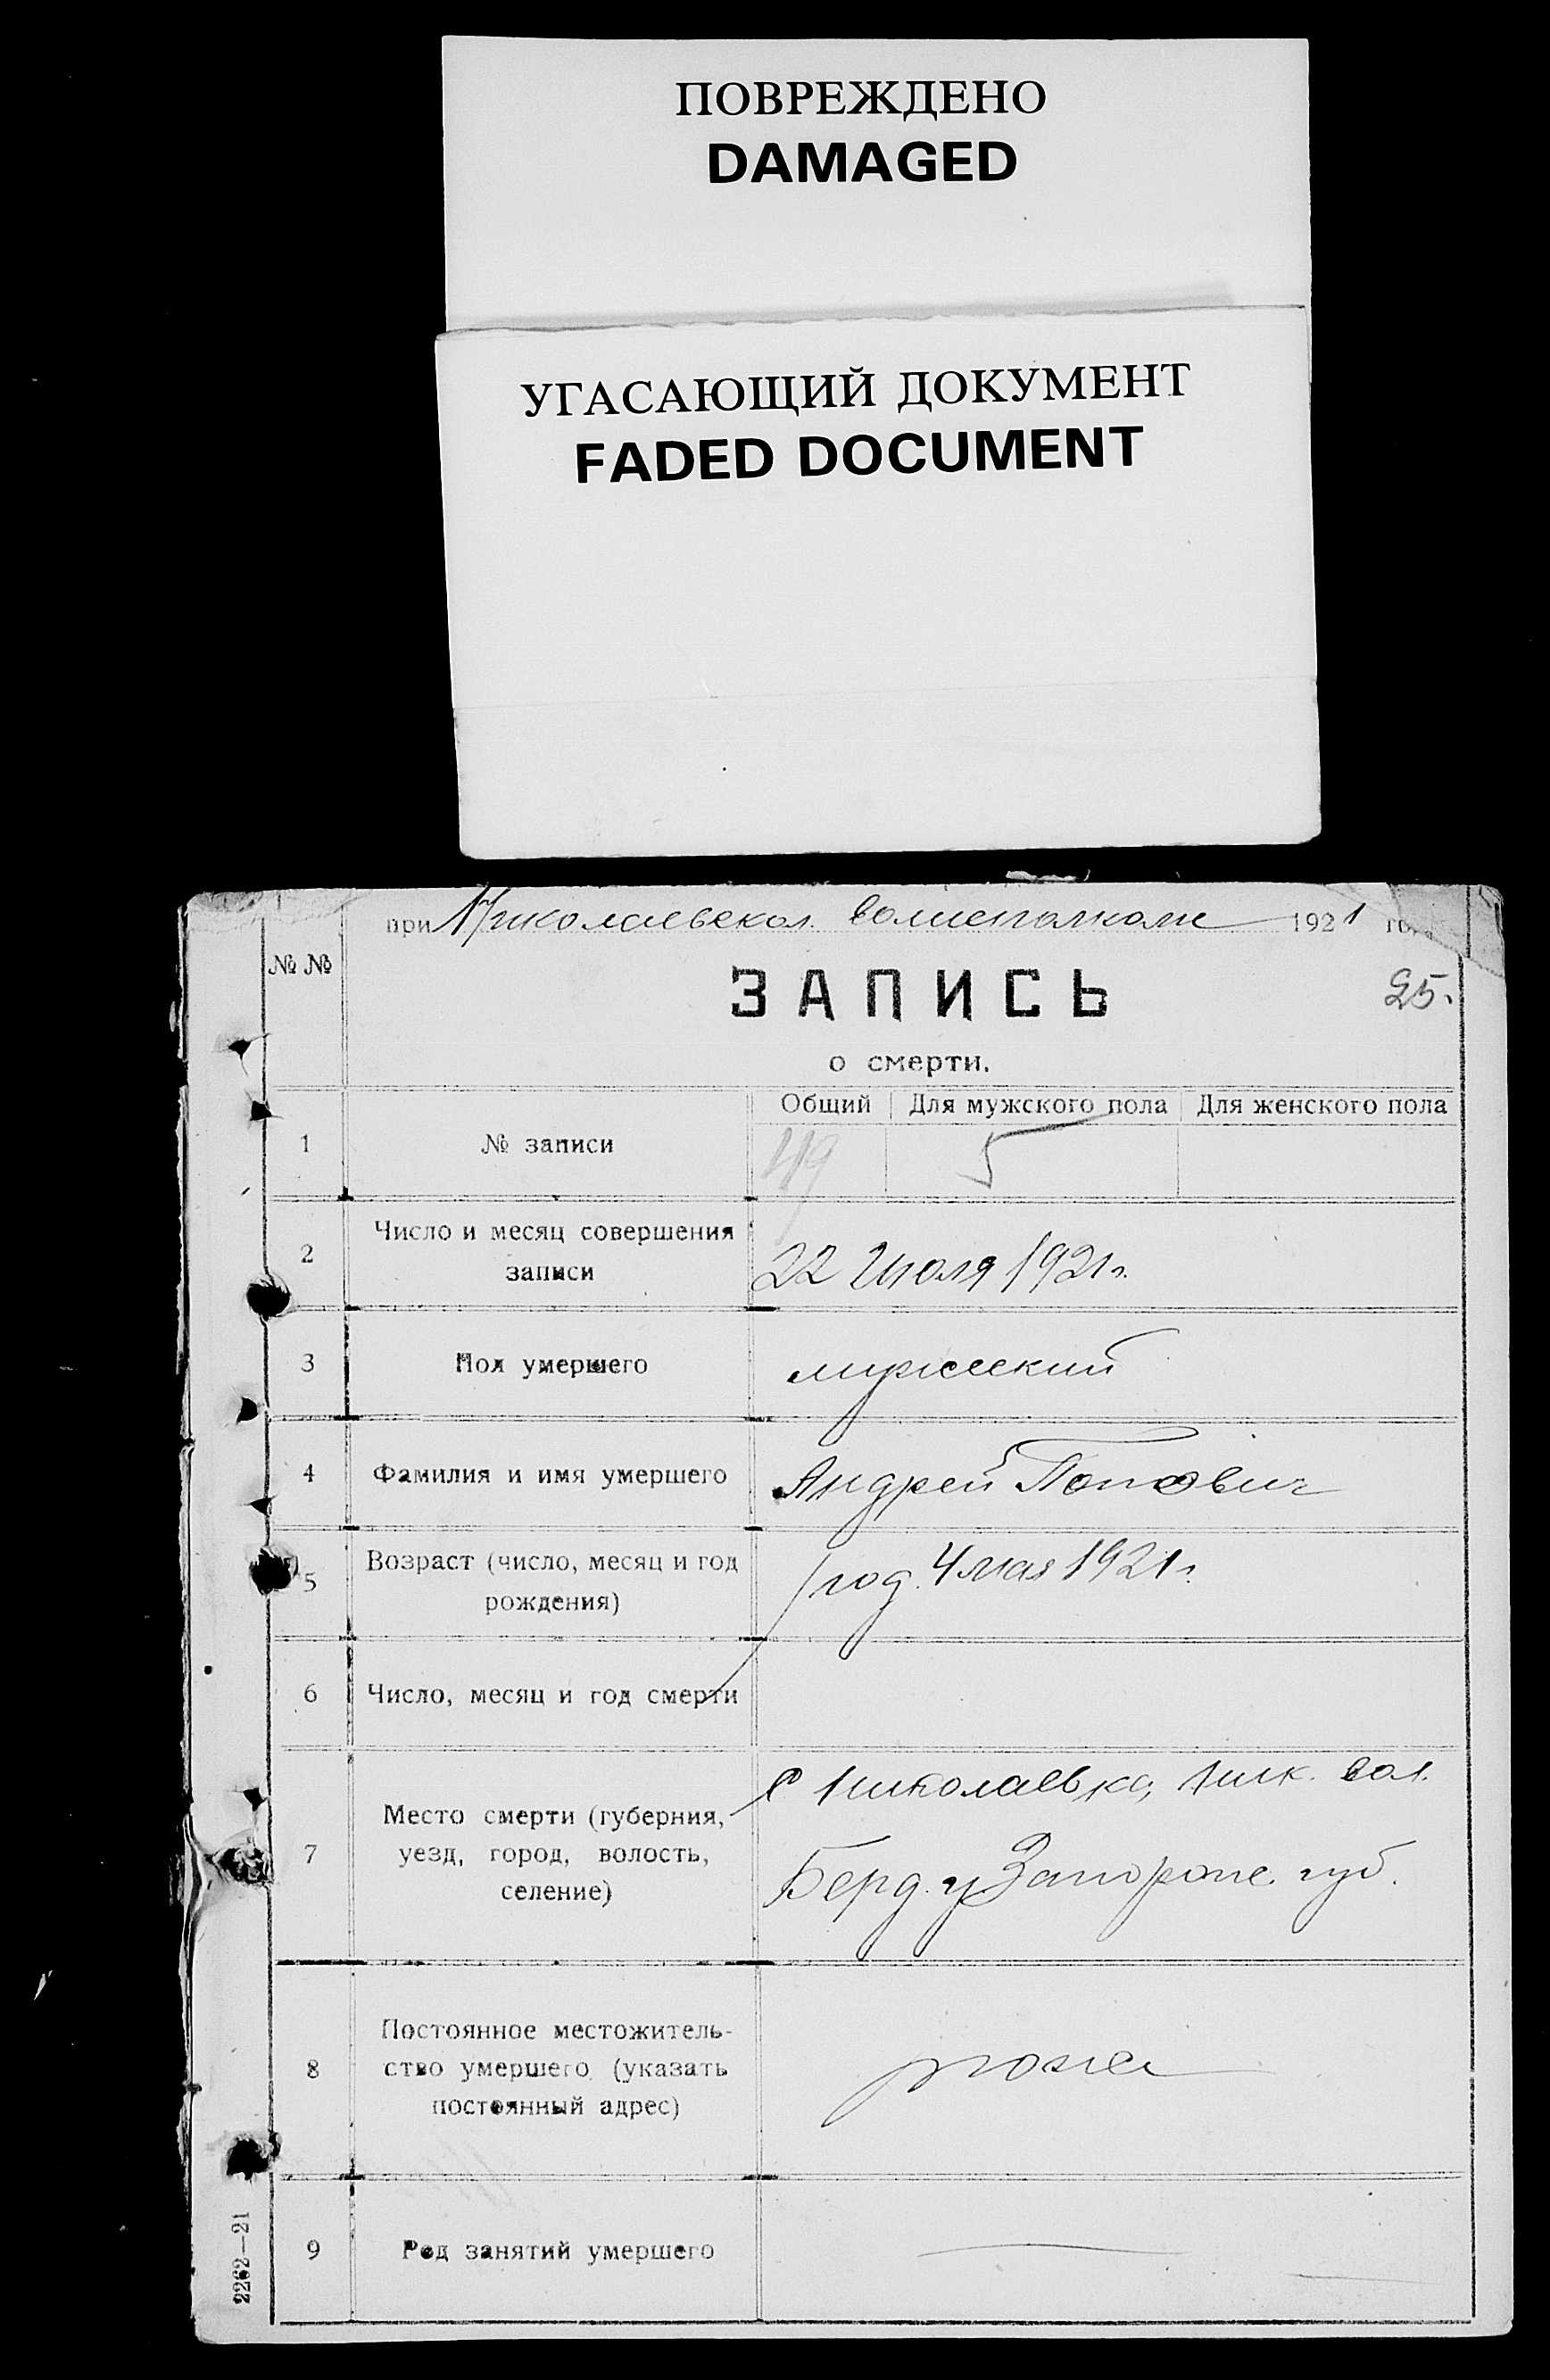 ПОВРЕЖДЕНО
DAMAGED
УГАСАЮЩИЙ ДОКУМЕНТ
FADED DOCUMENT
при Николаевском волисполкоме 1921 года
№ №
25.
ЗАПИСЬ
о смерти.
Общий Для мужского пола Для женского пола
1 № записи 49 5
2 Число и месяц совершения записи
22 Июля 1921 г.
3 Пол умершего мужеский
4 Фамилия и имя умершего Андрей Попович
5 Возраст (число, месяц и год рождения)
род. 4 мая 1921 г.
6 Число, месяц и год смерти
7 Место смерти (губерния, уезд, город, волость, селение)
С Николаевка, Ник. вол.
Берд. у Запорож. губ.
8 Постоянное местожитель-
ство умершего (указать
постоянный адрес)
9 Род занятий умершего
2262—21